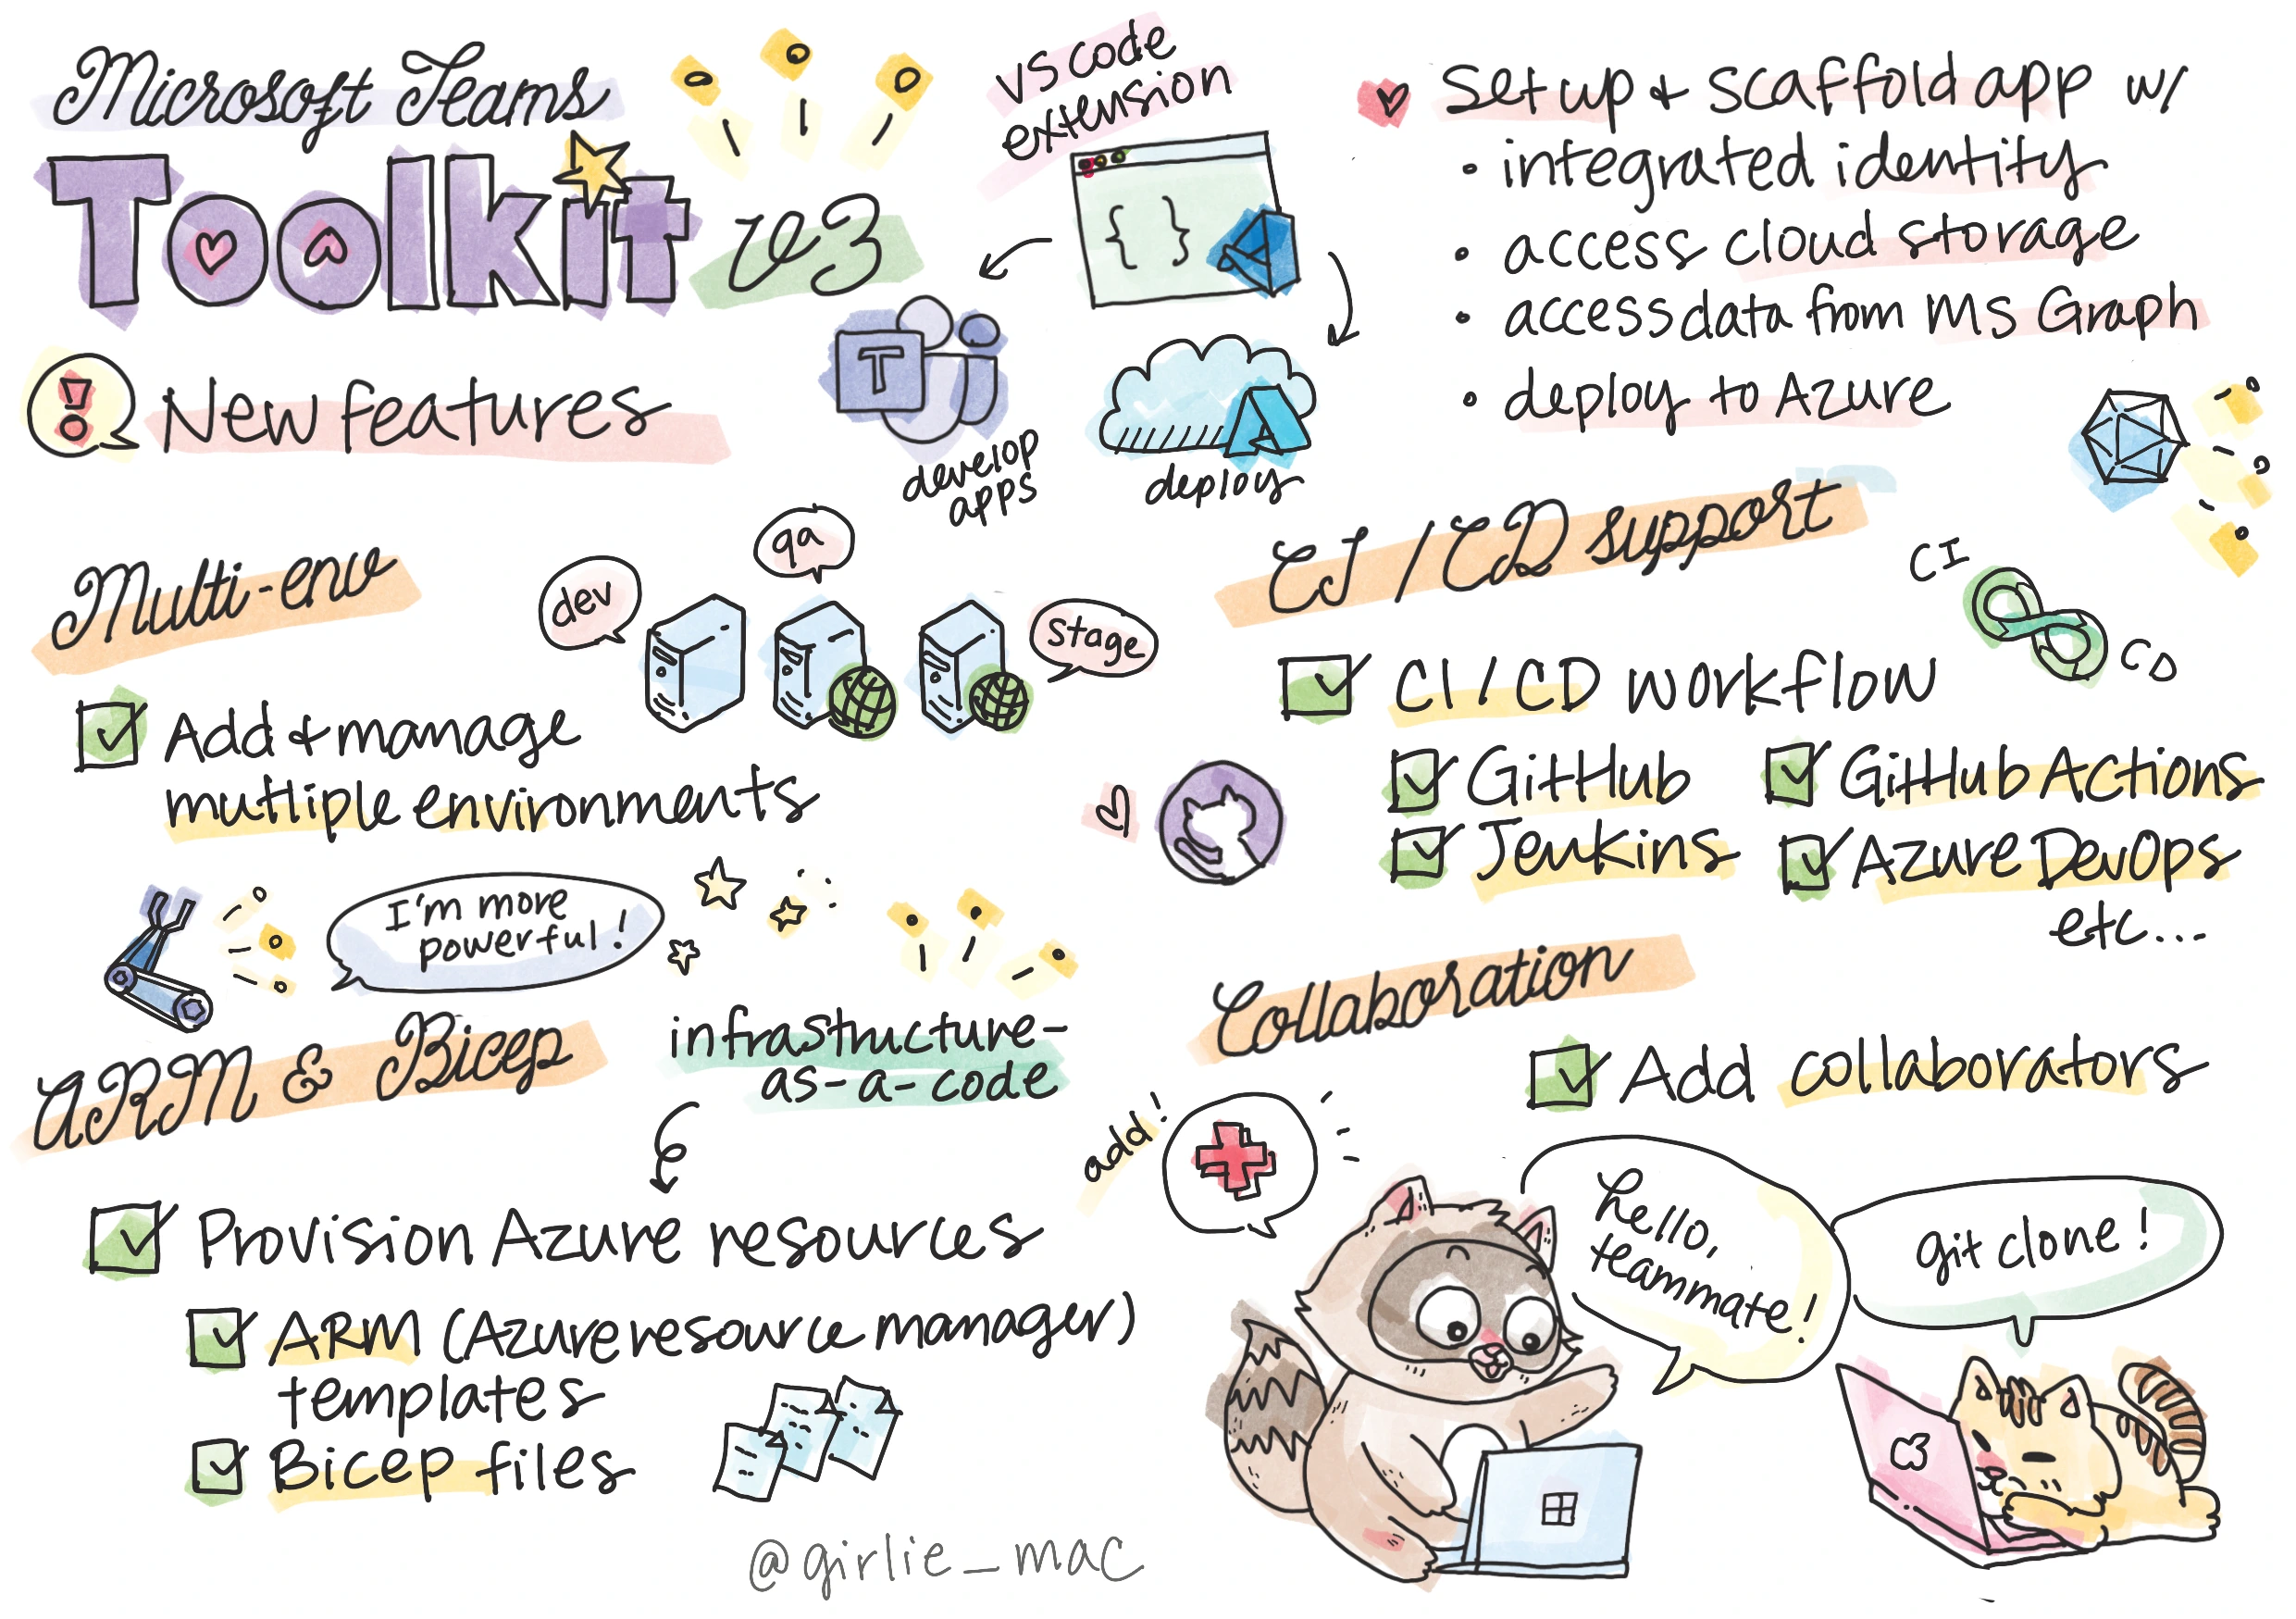 Microsoft Teams
Toolkit v3
! New features
VS code
extension
{ }
T
develop
apps
deploy
Set up & scaffold app w/
• integrated identity
• access cloud storage
• access data from MS Graph
• deploy to Azure
Multi-env
dev
qa
stage
Add & manage
mutliple environments
I'm more
powerful!
ARM & Bicep
infrastructure-
as-a-code
Provision Azure resources
ARM (Azure resource manager)
templates
Bicep files
CI / CD support
CI
CD
CI / CD workflow
GitHub
GitHub Actions
Jenkins
Azure DevOps
etc...
Collaboration
Add collaborators
add!
hello,
teammate!
git clone!
@girlie_mac